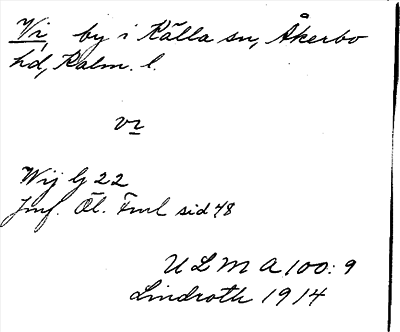 Vi, by i Källa sn, Åkerbo
hd, Kalm. l.
vi
Wij G 22
Jmf. Öl. Fml sid 48
ULMA 100:9
Lindroth 1914